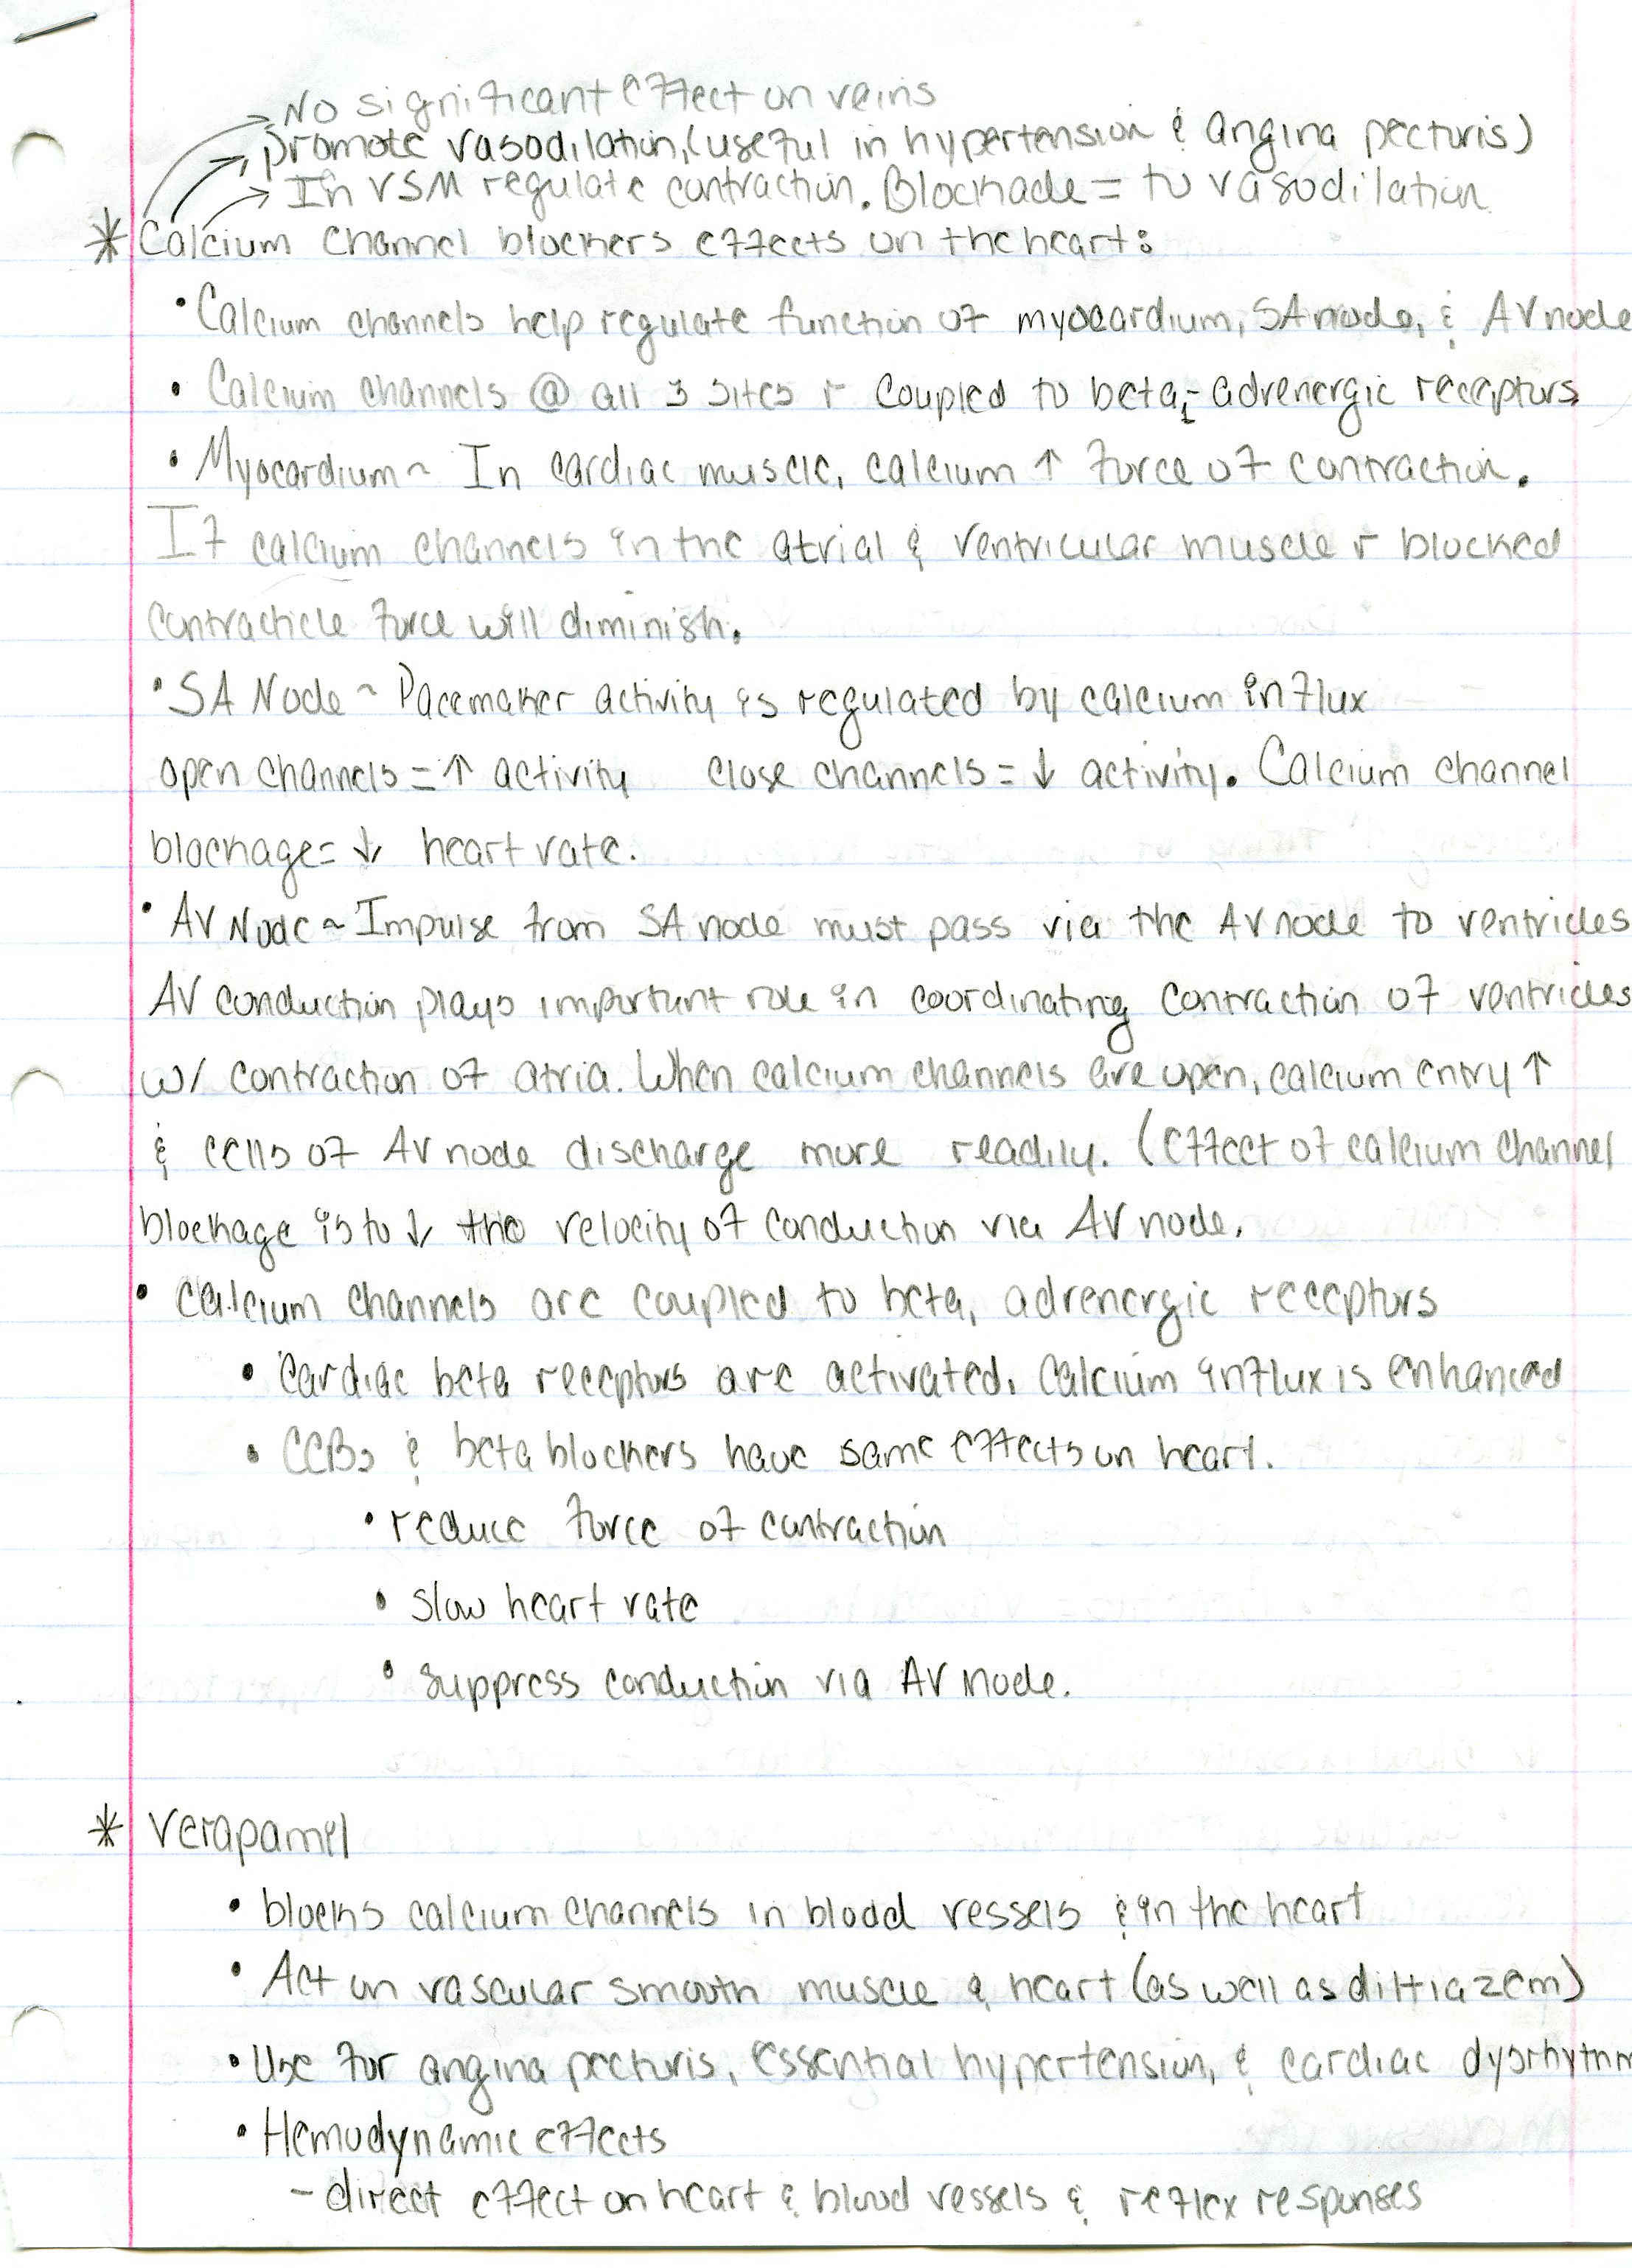 No significant effect on veins
promote vasodilation, (useful in hypertension & angina pecturis)
In VSM regulate contraction. Blockade = to vasodilation
* Calcium channel blockers effects on the heart:
• Calcium channels help regulate function of myocardium, SA node, & AV node
• Calcium channels @ all 3 sites r coupled to beta₁-adrenergic receptors
• Myocardium ~ In cardiac muscle, calcium ↑ force of contraction.
If calcium channels in the atrial & ventricular muscle r blocked
contracticle force will diminish.
• SA Node ~ Pacemaker activity is regulated by calcium influx
open channels = ↑ activity close channels = ↓ activity. Calcium channel
blockage = ↓ heart rate.
• AV Node ~ Impulse from SA node must pass via the AV node to ventricles
AV conduction plays important role in coordinating contraction of ventricles
w/ contraction of atria. When calcium channels are open, calcium entry ↑
& cells of AV node discharge more readily. (effect of calcium channel
blockage is to ↓ the velocity of conduction via AV node.
• Calcium channels are coupled to beta₁ adrenergic receptors
• Cardiac beta receptors are activated, calcium influx is enhanced
• CCBs & beta blockers have same effects on heart.
• reduce force of contraction
• slow heart rate
• suppress conduction via AV node.
* Verapamil
• blocks calcium channels in blood vessels & in the heart
• Act on vascular smooth muscle & heart (as well as diltiazem)
• Use for angina pecturis, essential hypertension, & cardiac dysrhythm
• Hemodynamic effects
- direct effect on heart & blood vessels & reflex responses